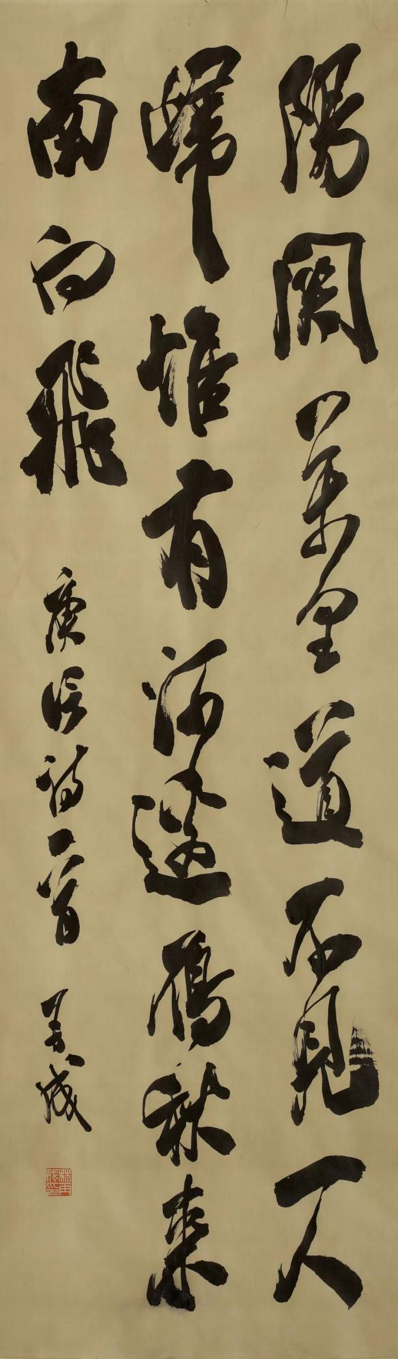 陽關萬里道不見一人
歸惟有河邊鴈秋來
南向飛 庾信詩一首 成